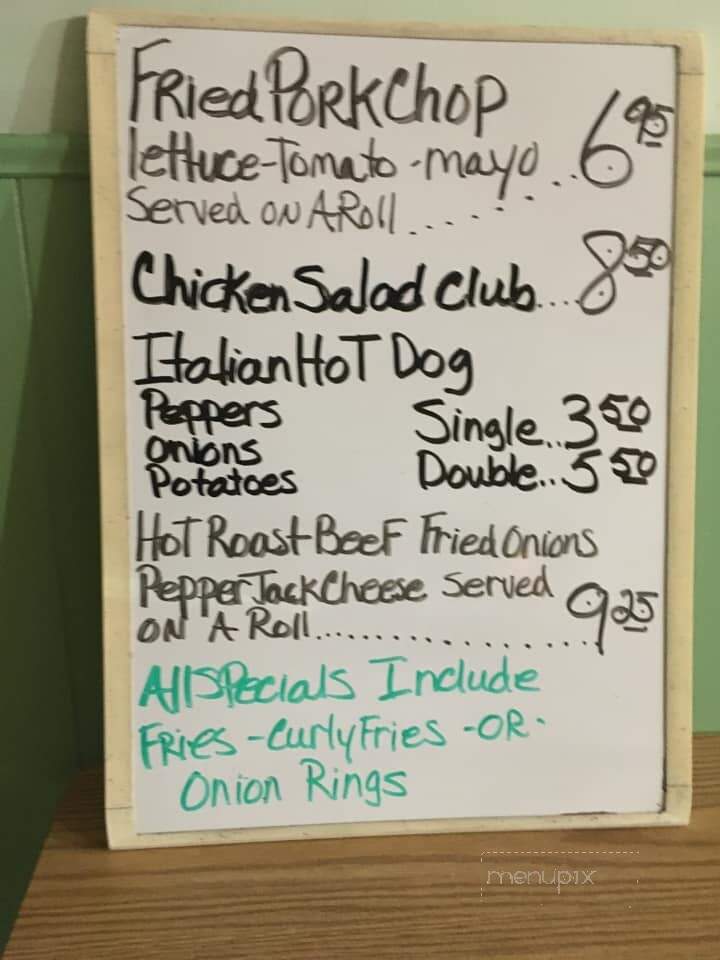 Fried Pork Chop
lettuce-Tomato-mayo... 6 95
Served ON A Roll.......
Chicken Salad Club.... 8 50
Italian HoT Dog
Peppers Single.. 3 50
onions
Potatoes Double.. 5 50
HoT Roast Beef Fried Onions
Pepper Jack Cheese Served
ON A Roll................. 9 25
All Specials Include
Fries - Curly Fries - OR -
Onion Rings
menupix